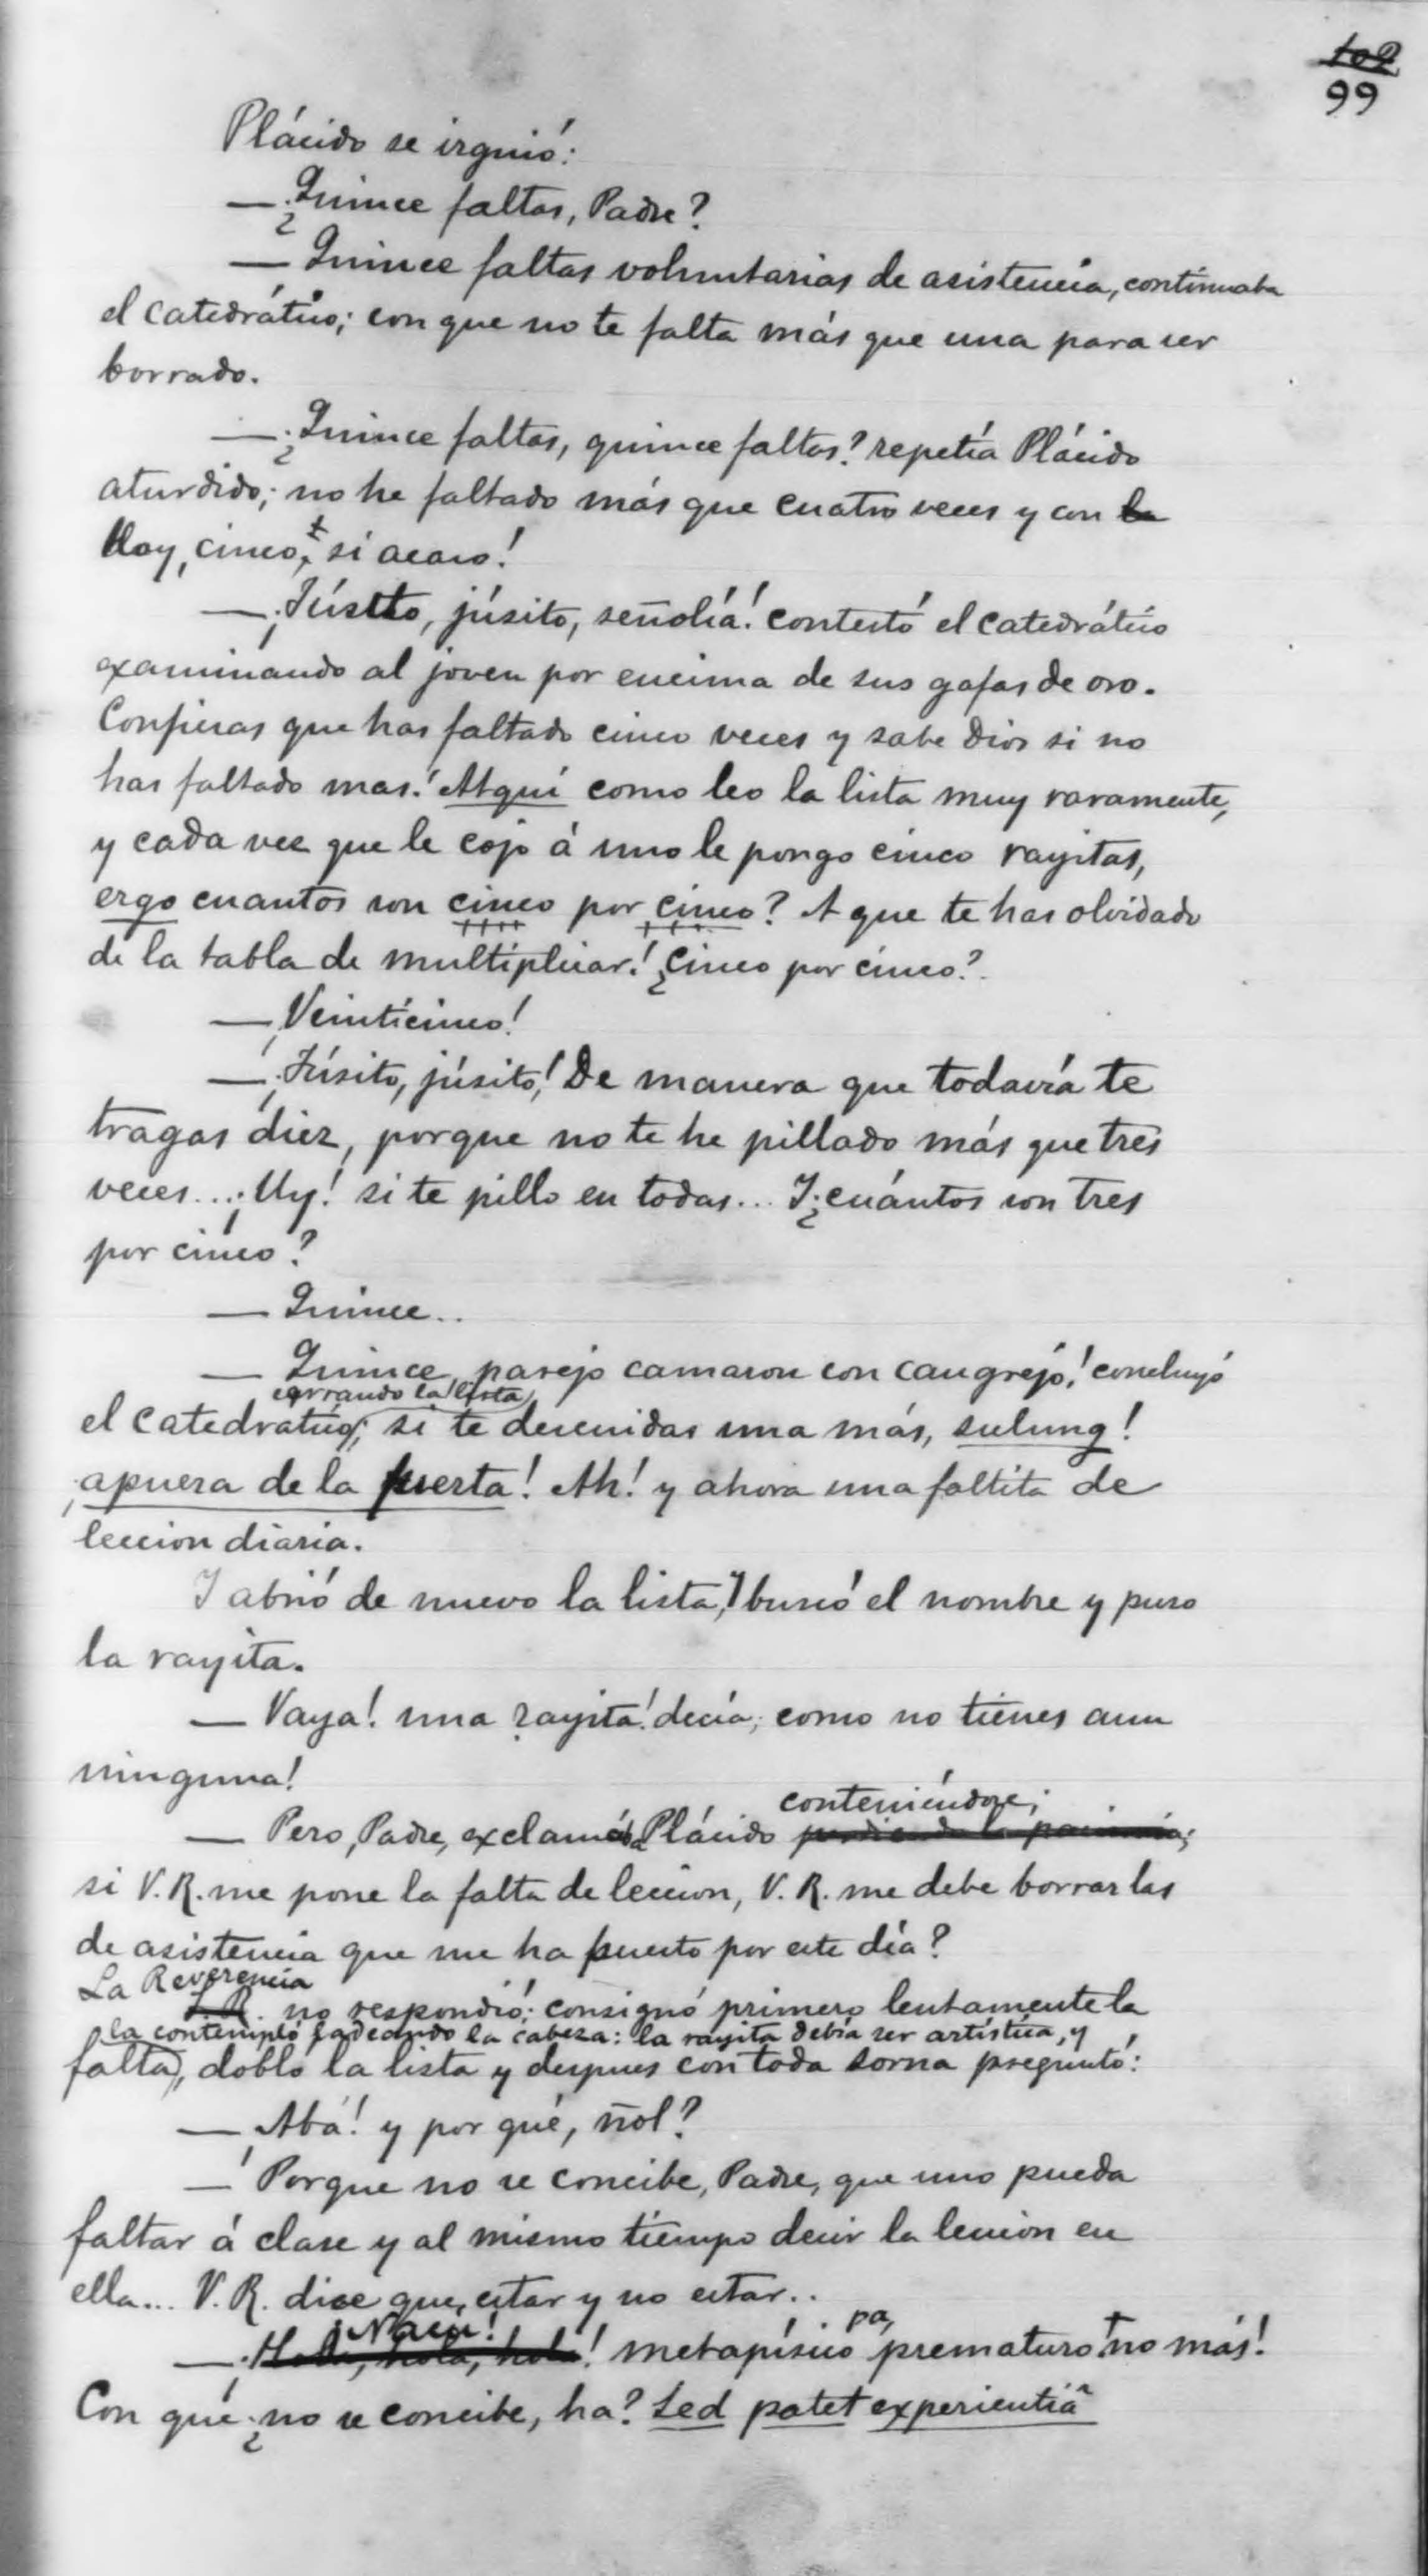 102
99
Plácido se irguió:
—¿Quince faltas, Padre?
— Quince faltas voluntarias de asistencia, continuaba
el catedrático; con que no te falta más que una para ser
borrado.
—¿Quince faltas, quince faltas? repetía Plácido
aturdido; no he faltado más que cuatro veces y con la
hoy, cinco, si acaso!
—¡Júsito, júsito, señolía! contestó el catedrático
examinando al joven por encima de sus gafas de oro.
Confiesas que has faltado cinco veces y sabe Dios si no
has faltado mas! Atqui como leo la lista muy raramente,
y cada vez que le cojo á uno le pongo cinco rayitas,
ergo cuantos son cinco por cinco? A que te has olvidado
de la tabla de multiplicar! ¿Cinco por cinco?
—¡Veinticinco!
—¡Júsito, júsito! De manera que todavía te
tragas diez, porque no te he pillado más que tres
veces...¡Uy! si te pillo en todas... Y ¿cuántos son tres
por cinco?
— Quince..
— Quince, parejo camaron con cangrejo! concluyó
cerrando la lista
el catedrático; si te descuidas una más, sulung!
¡apuera de la fuerta! Ah! y ahora una faltita de
leccion diaria.
Y abrió de nuevo la lista, buscó el nombre y puso
la rayita.
— Vaya! una rayita! decía; como no tienes aun
ninguna!
conteniéndose;
— Pero, Padre, exclamaba Plácido perdiendo la paciencia;
si V. R. me pone la falta de leccion, V. R. me debe borrar las
de asistencia que me ha puesto por este día?
La Reverencia
S. R. no respondió; consignó primero lentamente la
la contempló ladeando la cabeza: la rayita debía ser artística, y
falta, dobló la lista y despues con toda sorna preguntó:
—¡Abá! y por qué, ñol?
— Porque no se concibe, Padre, que uno pueda
faltar á clase y al mismo tiempo decir la leccion en
ella... V. R. dice que, estar y no estar..
¡Nacú! pa,
—¡Hola, hola, hola! metapísico prematuro no más!
Con qué ¿no se concibe, ha? Sed patet experientiâ